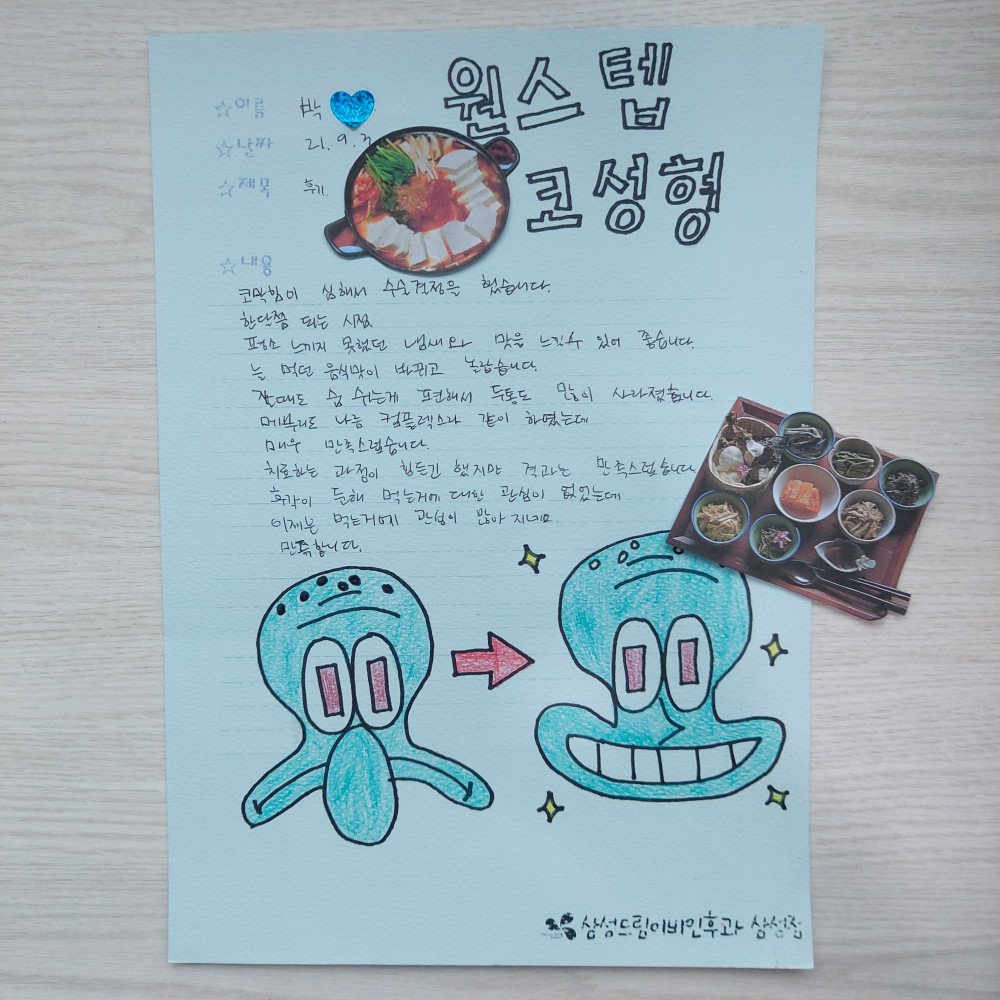 원스텝
코성형
☆이름 박
☆날짜 21. 9. 3
☆제목 후기
☆내용
코막힘이 심해서 수술결정을 했습니다.
한달쯤 되는 시점
평소 느끼지 못했던 냄새와 맛을 느낄수 있어 좋습니다.
늘 먹던 음식맛이 바뀌고 놀랍습니다.
잘때도 숨 쉬는게 편해서 두통도 많이 사라졌습니다.
메부리도 나름 컴플렉스라 같이 하였는데
매우 만족스럽습니다.
치료하는 과정이 힘들긴 했지만 결과는 만족스럽습니다
후각이 둔해 먹는거에 대한 관심이 없었는데
이제는 먹는거에 관심이 많아 지네요.
만족합니다.
삼성드림이비인후과 삼성점